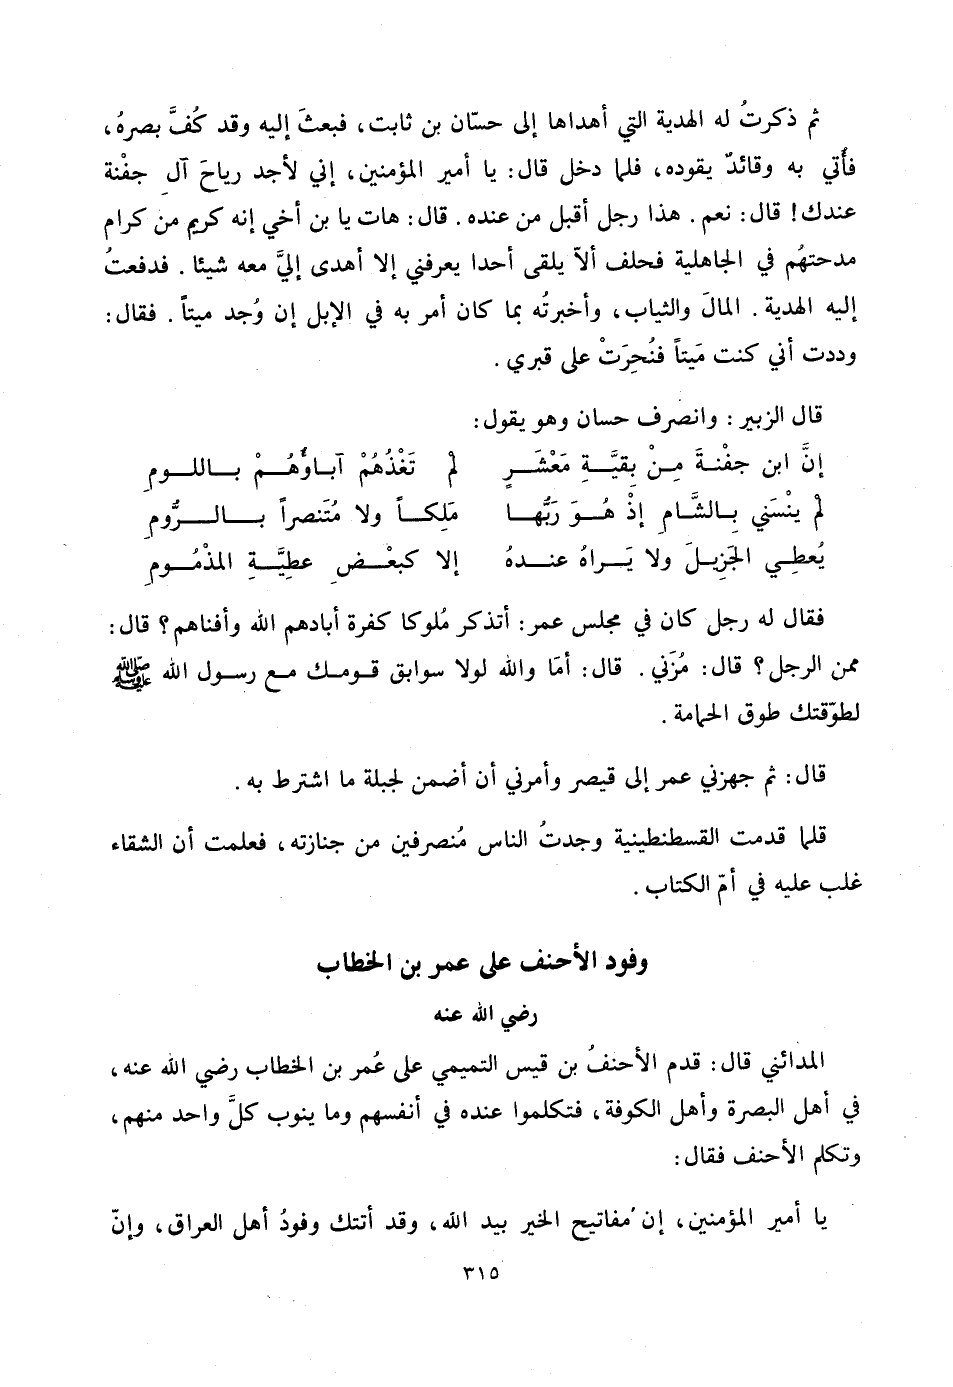 ثم ذكرتُ له الهدية التي أهداها إلى حسّان بن ثابت، فبعثَ إليه وقد كُفَّ بصرهُ،
فأُتي به وقائدٌ يقوده، فلما دخل قال: يا أمير المؤمنين، إني لأجد رياحَ آلِ جفْنة
عندك! قال: نعم. هذا رجل أقبل من عنده. قال: هات يا بن أخي إنه كريم من كرام
مدحتهُم في الجاهلية فحلف ألاّ يلقى أحدا يعرفني إلا أهدى إليَّ معه شيئا. فدفعتُ
إليه الهدية. المالَ والثياب، وأخبرتُه بما كان أمر به في الإبل إن وُجد ميتاً. فقال:
وددت أني كنت مَيتاً فنُحِرَتْ على قبري.
قال الزبير: وانصرف حسان وهو يقول:
إنَّ ابن جفْنةَ مِنْ بقيَّةِ مَعْشَرٍ لم تَغْذُهُمْ آباؤُهُمْ باللومِ
لم ينْسَني بالشَّامِ إذْ هُوَ رَبُّها مَلِكاً ولا مُتَنصراً بالرُّومِ
يُعطِي الجَزِيلَ ولا يَراهُ عندهُ إلا كبعْضِ عطِيَّةِ المذْمُومِ
فقال له رجل كان في مجلس عمر: أتذكر مُلوكا كفرة أبادهم الله وأفناهم؟ قال:
ممن الرجل؟ قال: مُزَني. قال: أمَا والله لولا سوابق قومك مع رسول الله ﷺ
لطوّقتك طوق الحمامة.
قال: ثم جهزني عمر إلى قيصر وأمرني أن أضمن لجبلة ما اشترط به.
قلما قدمت القسطنطينية وجدتُ الناس مُنصرفين من جنازته، فعلمت أن الشقاء
غلب عليه في أمّ الكتاب.
وفود الأحنف على عمر بن الخطاب
رضي الله عنه
المدائني قال: قدم الأحنفُ بن قيس التميمي على عُمر بن الخطاب رضي الله عنه،
في أهل البصرة وأهل الكوفة، فتكلموا عنده في أنفسهم وما ينوب كلَّ واحد منهم،
وتكلم الأحنف فقال:
يا أمير المؤمنين، إن مفاتيح الخير بيد الله، وقد أتتك وفودُ أهل العراق، وإنّ
٣١٥